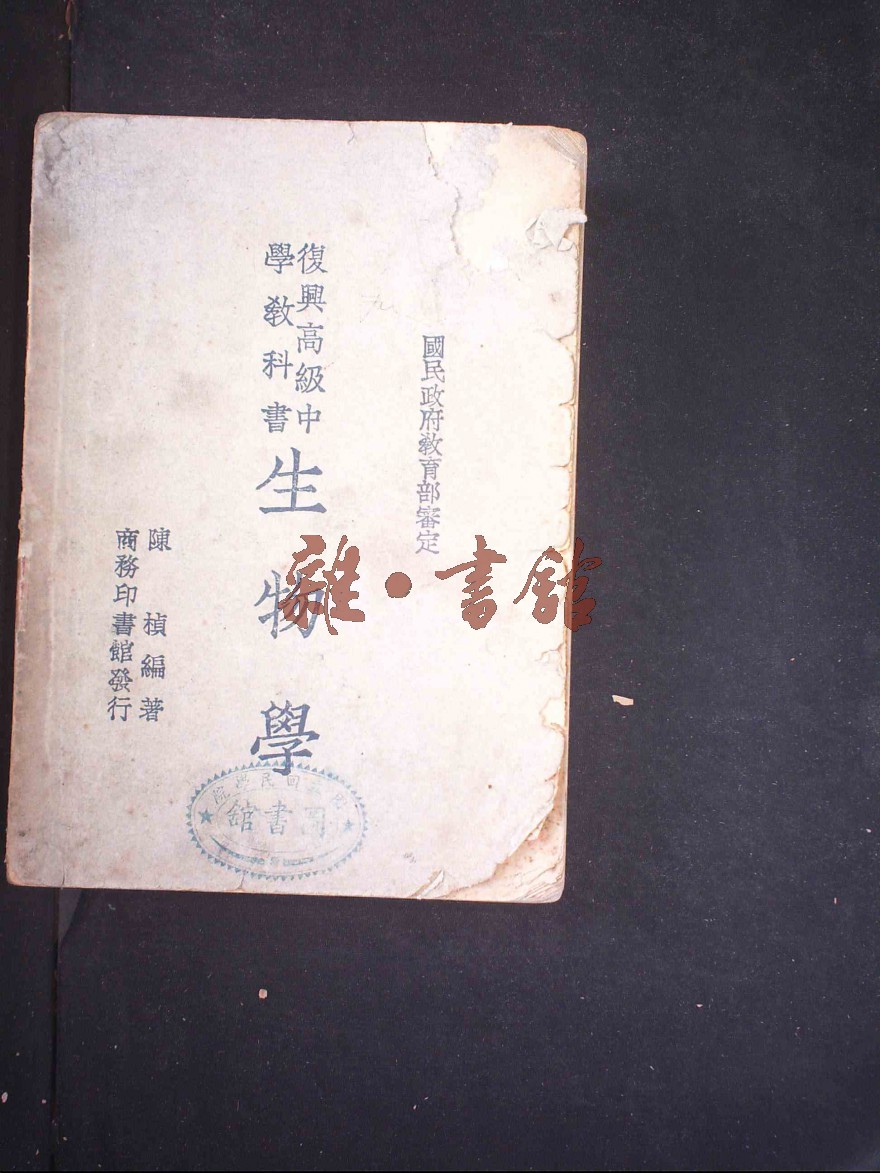 國民政府教育部審定
復興高級中
學教科書
生物學
陳楨編著
商務印書館發行
雜·書館
回民學院
圖書館